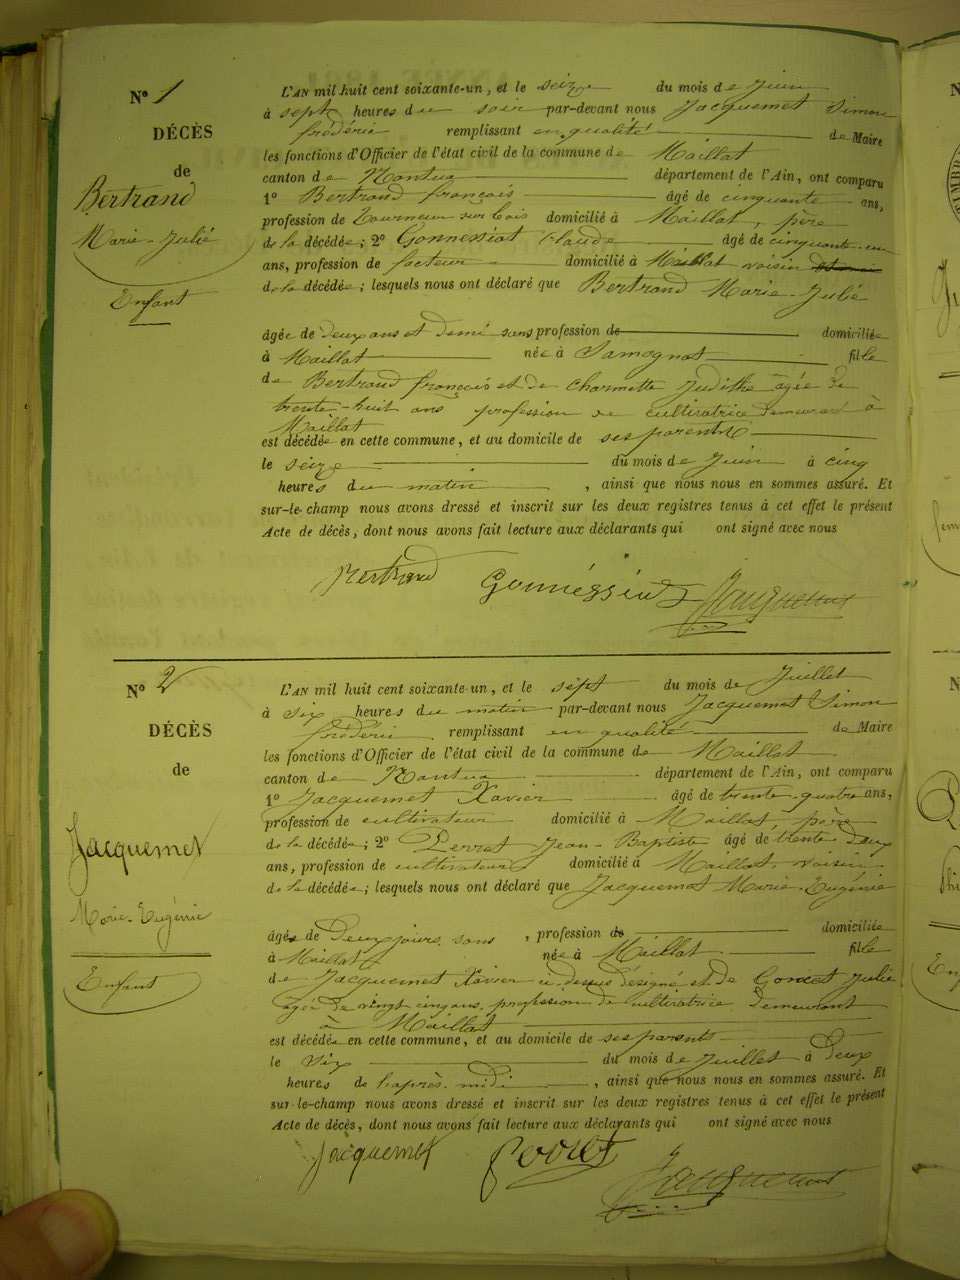 N° 1
DÉCÈS
de
Bertrand
Marie-Julie
Enfant
L'AN mil huit cent soixante-un, et le seize du mois de Juin
à sept heures du soir par-devant nous Jacquemet Simon
frédéric remplissant en qualité de Maire
les fonctions d'Officier de l'état civil de la commune de Maillat
canton de Nantua département de l'Ain, ont comparu
1° Bertrand françois âgé de cinquante ans,
profession de Tourneur sur bois domicilié à Maillat, père
de la décédée; 2° Gonnessiat Claude âgé de cinquante-un
ans, profession de facteur domicilié à Maillat voisin
de la décédée; lesquels nous ont déclaré que Bertrand Marie-Julie
âgée de deux ans et demi sans profession de domiciliée
à Maillat née à Samognat fille
de Bertrand françois et de Charmette Judithe âgée de
trente-huit ans profession de cultivatrice demeurant à
Maillat
est décédée en cette commune, et au domicile de ses parents
le seize du mois de Juin à cinq
heures du matin , ainsi que nous nous en sommes assuré. Et
sur-le-champ nous avons dressé et inscrit sur les deux registres tenus à cet effet le présent
Acte de décès, dont nous avons fait lecture aux déclarants qui ont signé avec nous
Bertrand Gonnéssiat Jacquemet
N° 2
DÉCÈS
de
Jacquemet
Marie-Eugénie
Enfant
L'AN mil huit cent soixante-un, et le sept du mois de Juillet
à six heures du matin par-devant nous Jacquemet Simon
frédéric remplissant en qualité de Maire
les fonctions d'Officier de l'état civil de la commune de Maillat
canton de Nantua département de l'Ain, ont comparu
1° Jacquemet Xavier âgé de trente-quatre ans,
profession de cultivateur domicilié à Maillat, père
de la décédée; 2° Perret Jean-Baptiste âgé de trente deux
ans, profession de cultivateur domicilié à Maillat voisin
de la décédée; lesquels nous ont déclaré que Jacquemet Marie-Eugénie
âgée de Deux jours sans , profession de domiciliée
à Maillat née à Maillat fille
de Jacquemet Xavier ci-dessus désigné et de Julie
âgée de vingt cinq ans, profession de cultivatrice demeurant
à Maillat
est décédée en cette commune, et au domicile de ses parents
le six du mois de Juillet à deux
heures de l'après-midi , ainsi que nous nous en sommes assuré. Et
sur-le-champ nous avons dressé et inscrit sur les deux registres tenus à cet effet le présent
Acte de décès, dont nous avons fait lecture aux déclarants qui ont signé avec nous
Jacquemet Perret Jacquemet